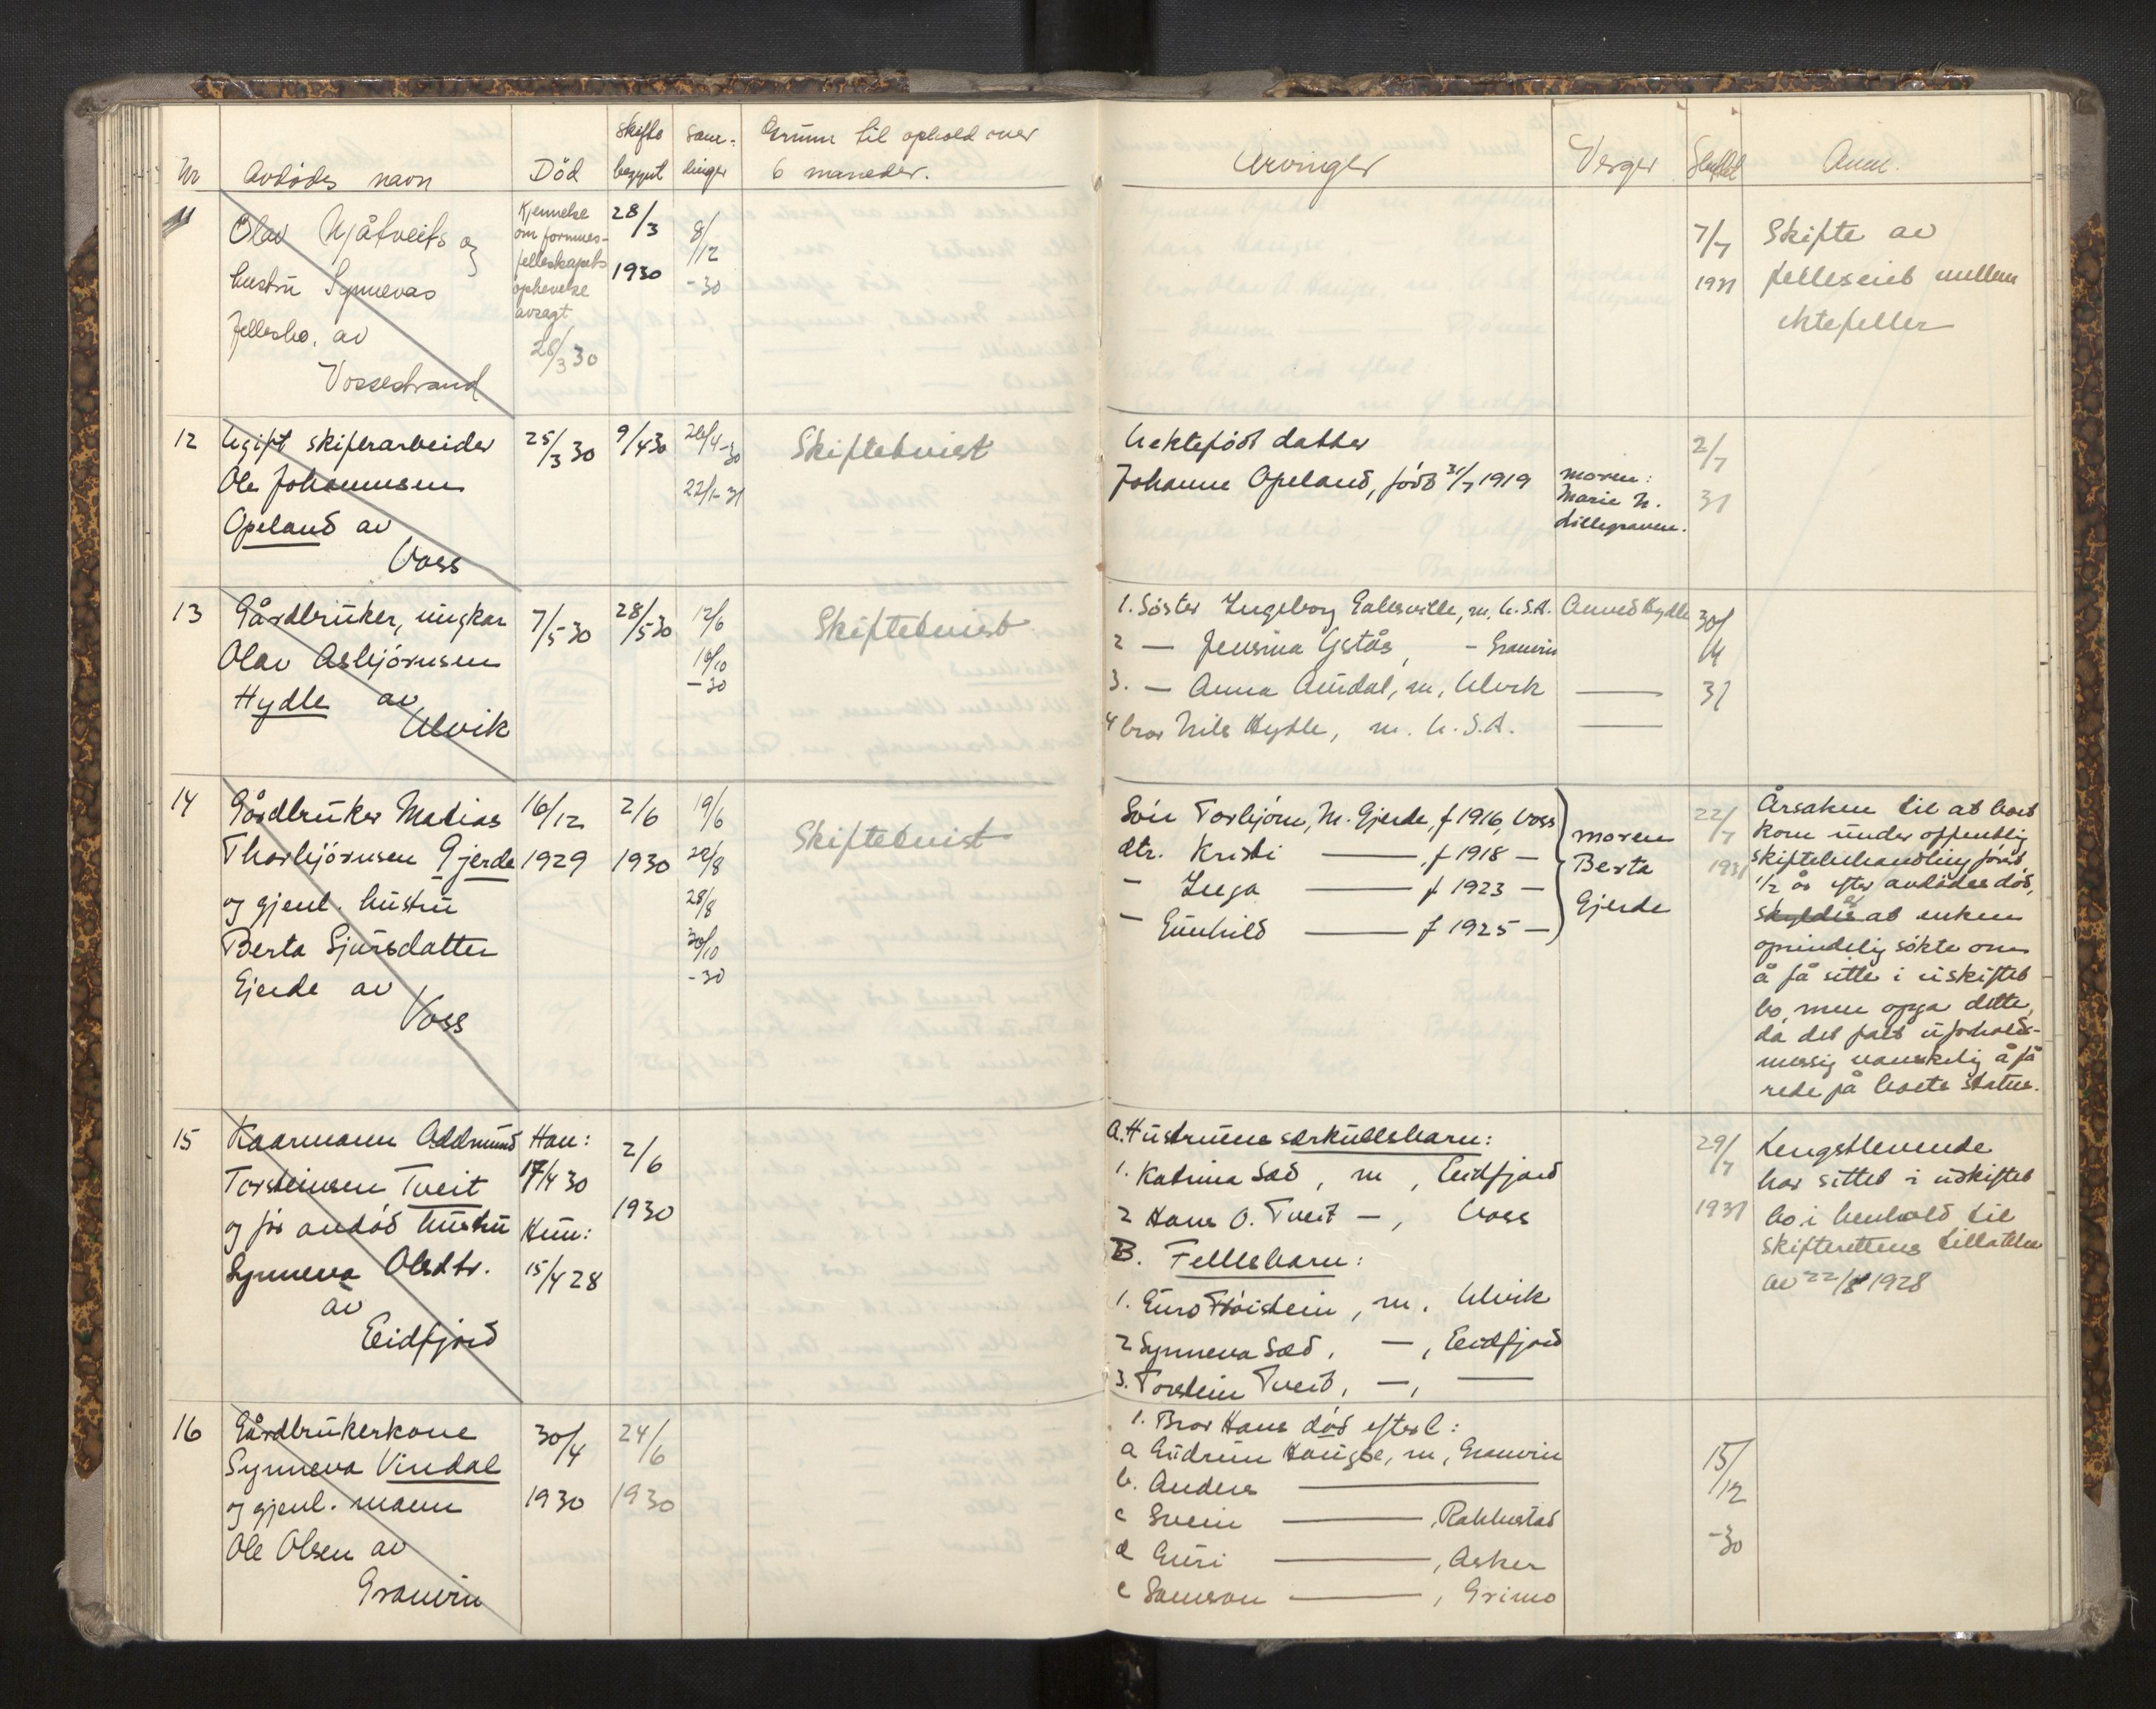 Nr
Avdødes navn
Død
Skifte begynt
Sam-
linger
Grunn til ophold over
6 måneder.
Arvinger
Verger
Sluttet
Anm.
11
Olav Mjåtveits og
hustru Synnevas
fellesbo, av
Vossestrand
Kjennelse
om formues-
felleskapets
ophevelse
avsagt
28/3 30
28/3
1930
8/12
-30
7/7
1931
Skifte av
felleseieb mellem
ektefeller
12
Ugift skiferarbeider
Ole Johannesen
Opeland av
Voss
25/3 30
9/4 30
26/4-30
22/1-31
Skiftetvist
Uektefødt datter
Johanne Opeland, født 31/7 1919
moren:
Marie N.
Lillegraven.
2/7
31
13
Gårdbruker, ungkar
Olav Asbjørnsen
Hydle av
Ulvik
7/5-30
28/5 30
12/6
10/10
-30
Skiftetvist
1. Søster Ingeborg Galesville, m. U.S.A.
2 — Jensina Ystås, - Granvin
3. — Anna Aurdal, m, Ulvik
4 bror Nils Hydle, m. U.S.A.
Amved Hydle
30/4
31
14
Gårdbruker Matias
Thorbjørnsen Gjerde
og gjenl. hustru
Berta Sjursdatter
Gjerde av
Voss
16/12
1929
2/6
1930
19/6
28/8
28/8
30/10
-30
Skiftetvist
Søn Torbjørn, M. Gjerde, f 1916, Voss
dtr. Kristi — f 1918 —
- Inga — f 1923 —
- Gunhild — f 1925 —
moren
Berta
Gjerde
22/7
1931
Årsaken til at boet
kom under offentlig
skiftebehandling først
1/2 år efter avdødes død,
skyldes at enken
oprindelig søkte om
å få sitte i uskiftet
bo, men opga dette,
da det falt uforholds-
messig vanskelig å få
rede på boets status.
15
Kaarmann Oddmund
Torsteinsen Tveit
og før avdød hustru
Synneva Olsdtr.
av
Eidfjord
Han:
17/4 30
Hun:
15/4 28
2/6
1930
A. Hustruens særkullsbarn:
1. Katrina Sæd, m, Eidfjord
2 Hans O. Tveit —, Voss
B. Fellesbarn:
1. Guro Trøistein, m. Ulvik
2 Synneva Sæd, —, Eidfjord
3. Torstein Tveit, —, —
29/7
1931
Lengstlevende
har sittet i uskiftet
bo i henhold til
skifterettens tillatelse
av 22/8 1928
16
Gårdbrukerkone
Synneva Vindal
og gjenl. mann
Ole Olsen av
Granvin
30/4
1930
24/6
1930
1. Bror Hans død efterl:
a Gudrun Haugse, m, Granvin
b. Anders —
c Svein —, Rakkestad
d Guri —, Asker
e Samson —, Grimo
15/12
-30